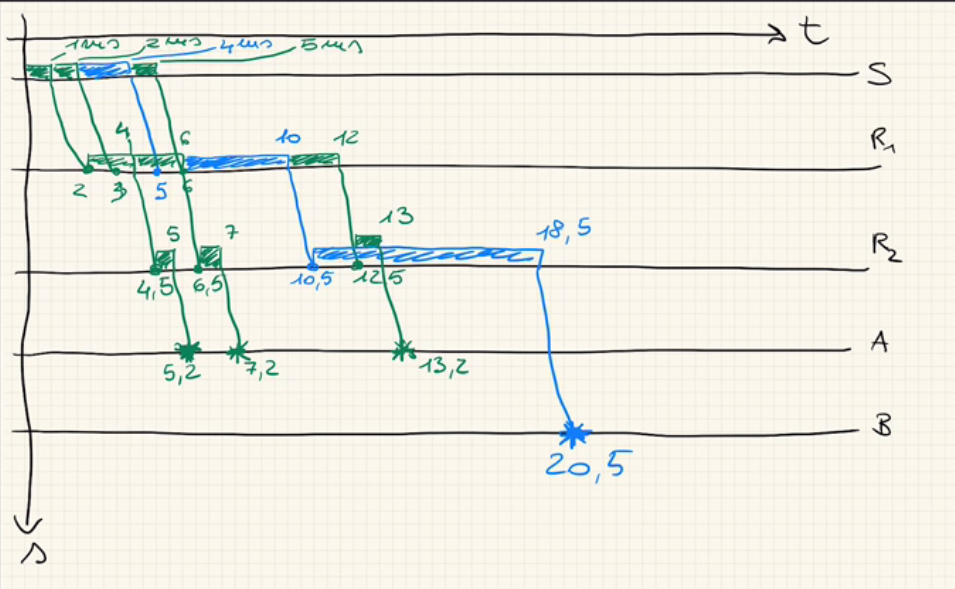 t
1ms 2ms 4ms 5ms
S
4 6 10 12
R1
2 3 5 6
5 7 13 18,5
R2
4,5 6,5 10,5 12,5
A
5,2 7,2 13,2
B
20,5
s